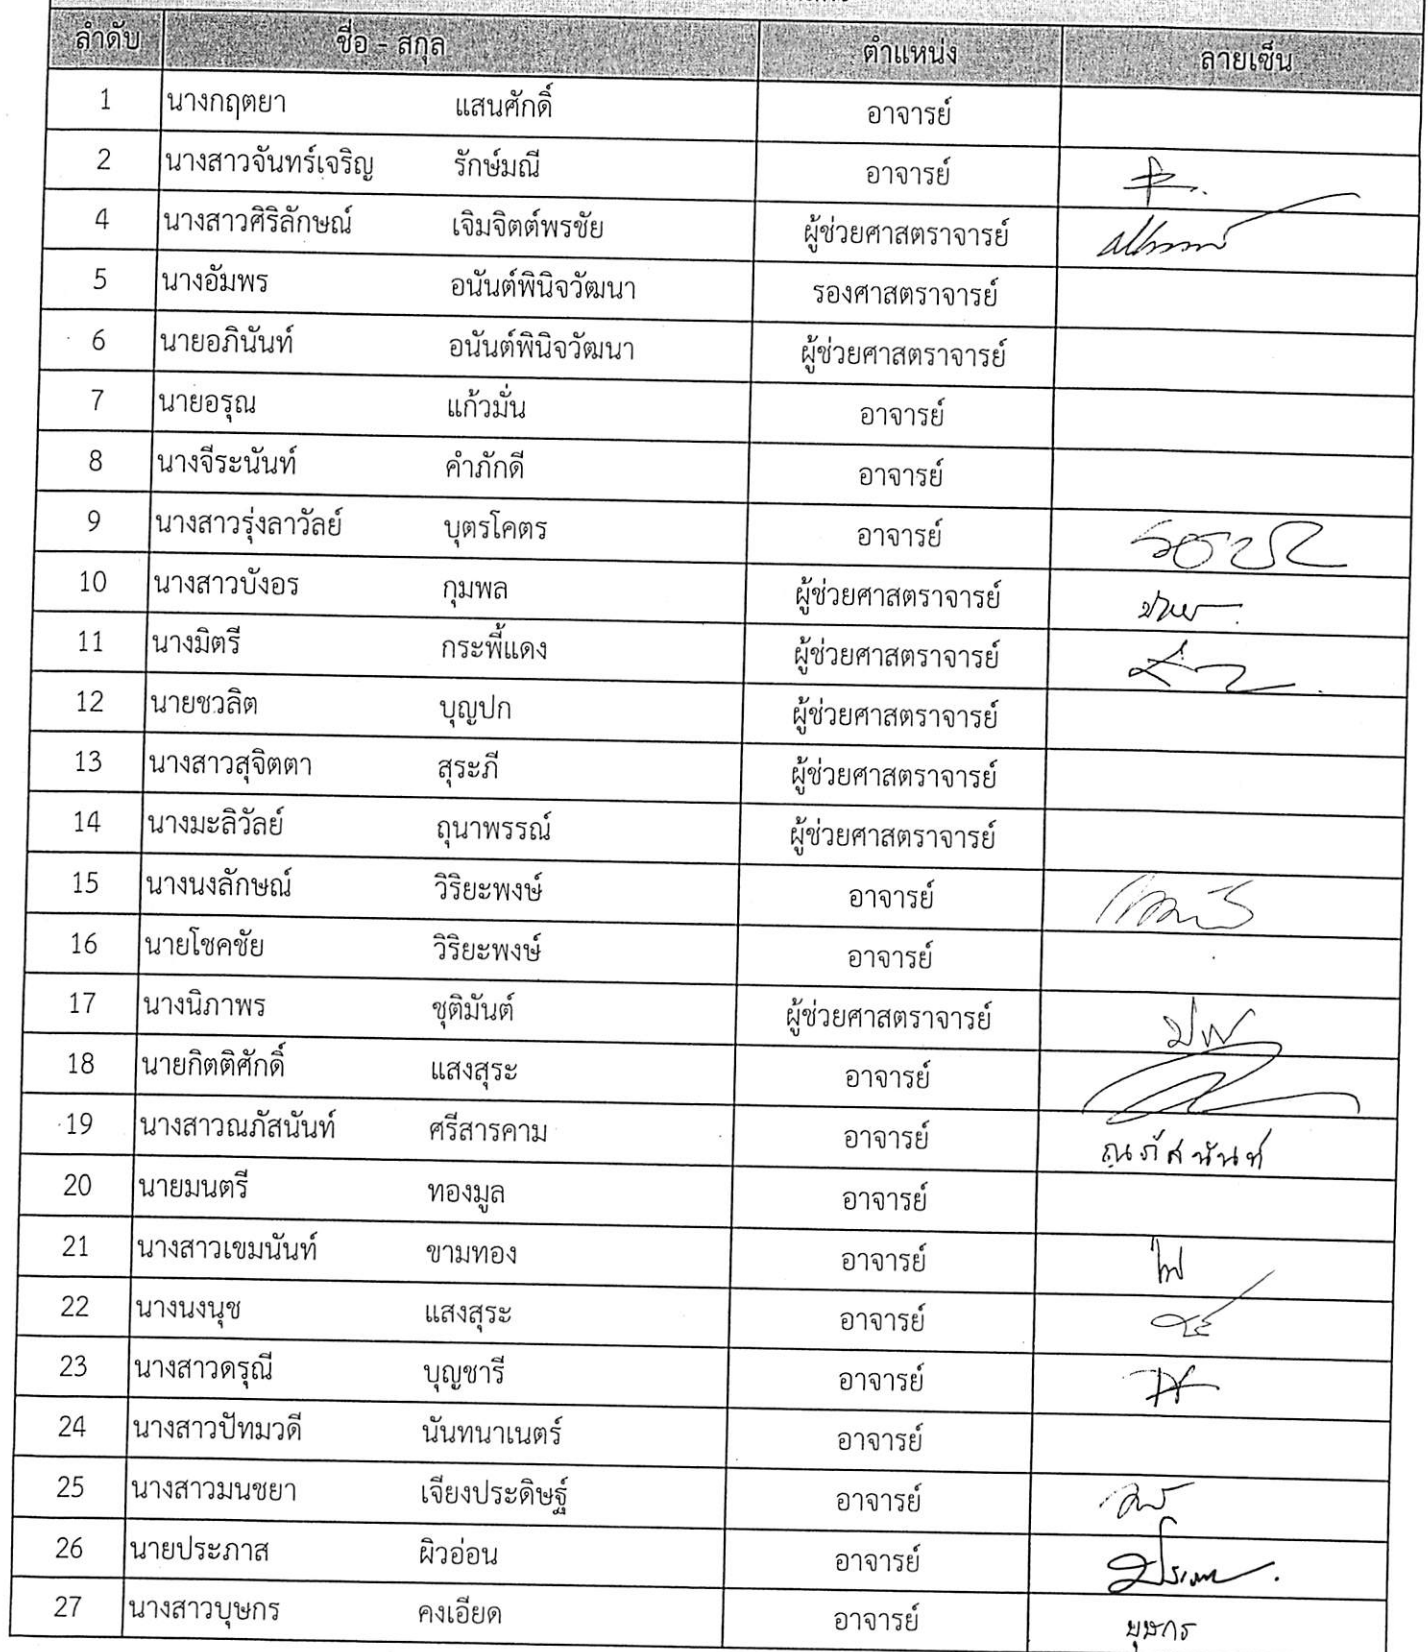 ลำดับ ชื่อ - สกุล ตำแหน่ง ลายเซ็น
1 นางกฤตยา แสนศักดิ์ อาจารย์
2 นางสาวจันทร์เจริญ รักษ์มณี อาจารย์
4 นางสาวศิริลักษณ์ เจิมจิตต์พรชัย ผู้ช่วยศาสตราจารย์
5 นางอัมพร อนันต์พินิจวัฒนา รองศาสตราจารย์
6 นายอภินันท์ อนันต์พินิจวัฒนา ผู้ช่วยศาสตราจารย์
7 นายอรุณ แก้วมั่น อาจารย์
8 นางจีระนันท์ คำภักดี อาจารย์
9 นางสาวรุ่งลาวัลย์ บุตรโคตร อาจารย์
10 นางสาวบังอร กุมพล ผู้ช่วยศาสตราจารย์
11 นางมิตรี กระพี้แดง ผู้ช่วยศาสตราจารย์
12 นายชวลิต บุญปก ผู้ช่วยศาสตราจารย์
13 นางสาวสุจิตตา สุระภี ผู้ช่วยศาสตราจารย์
14 นางมะลิวัลย์ ถุนาพรรณ์ ผู้ช่วยศาสตราจารย์
15 นางนงลักษณ์ วิริยะพงษ์ อาจารย์
16 นายโชคชัย วิริยะพงษ์ อาจารย์
17 นางนิภาพร ชุติมันต์ ผู้ช่วยศาสตราจารย์
18 นายกิตติศักดิ์ แสงสุระ อาจารย์
19 นางสาวณภัสนันท์ ศรีสารคาม อาจารย์ ณภัสนันท์
20 นายมนตรี ทองมูล อาจารย์
21 นางสาวเขมนันท์ ขามทอง อาจารย์
22 นางนงนุช แสงสุระ อาจารย์
23 นางสาวดรุณี บุญชารี อาจารย์
24 นางสาวปัทมวดี นันทนาเนตร์ อาจารย์
25 นางสาวมนชยา เจียงประดิษฐ์ อาจารย์
26 นายประภาส ผิวอ่อน อาจารย์
27 นางสาวบุษกร คงเอียด อาจารย์ บุษกร